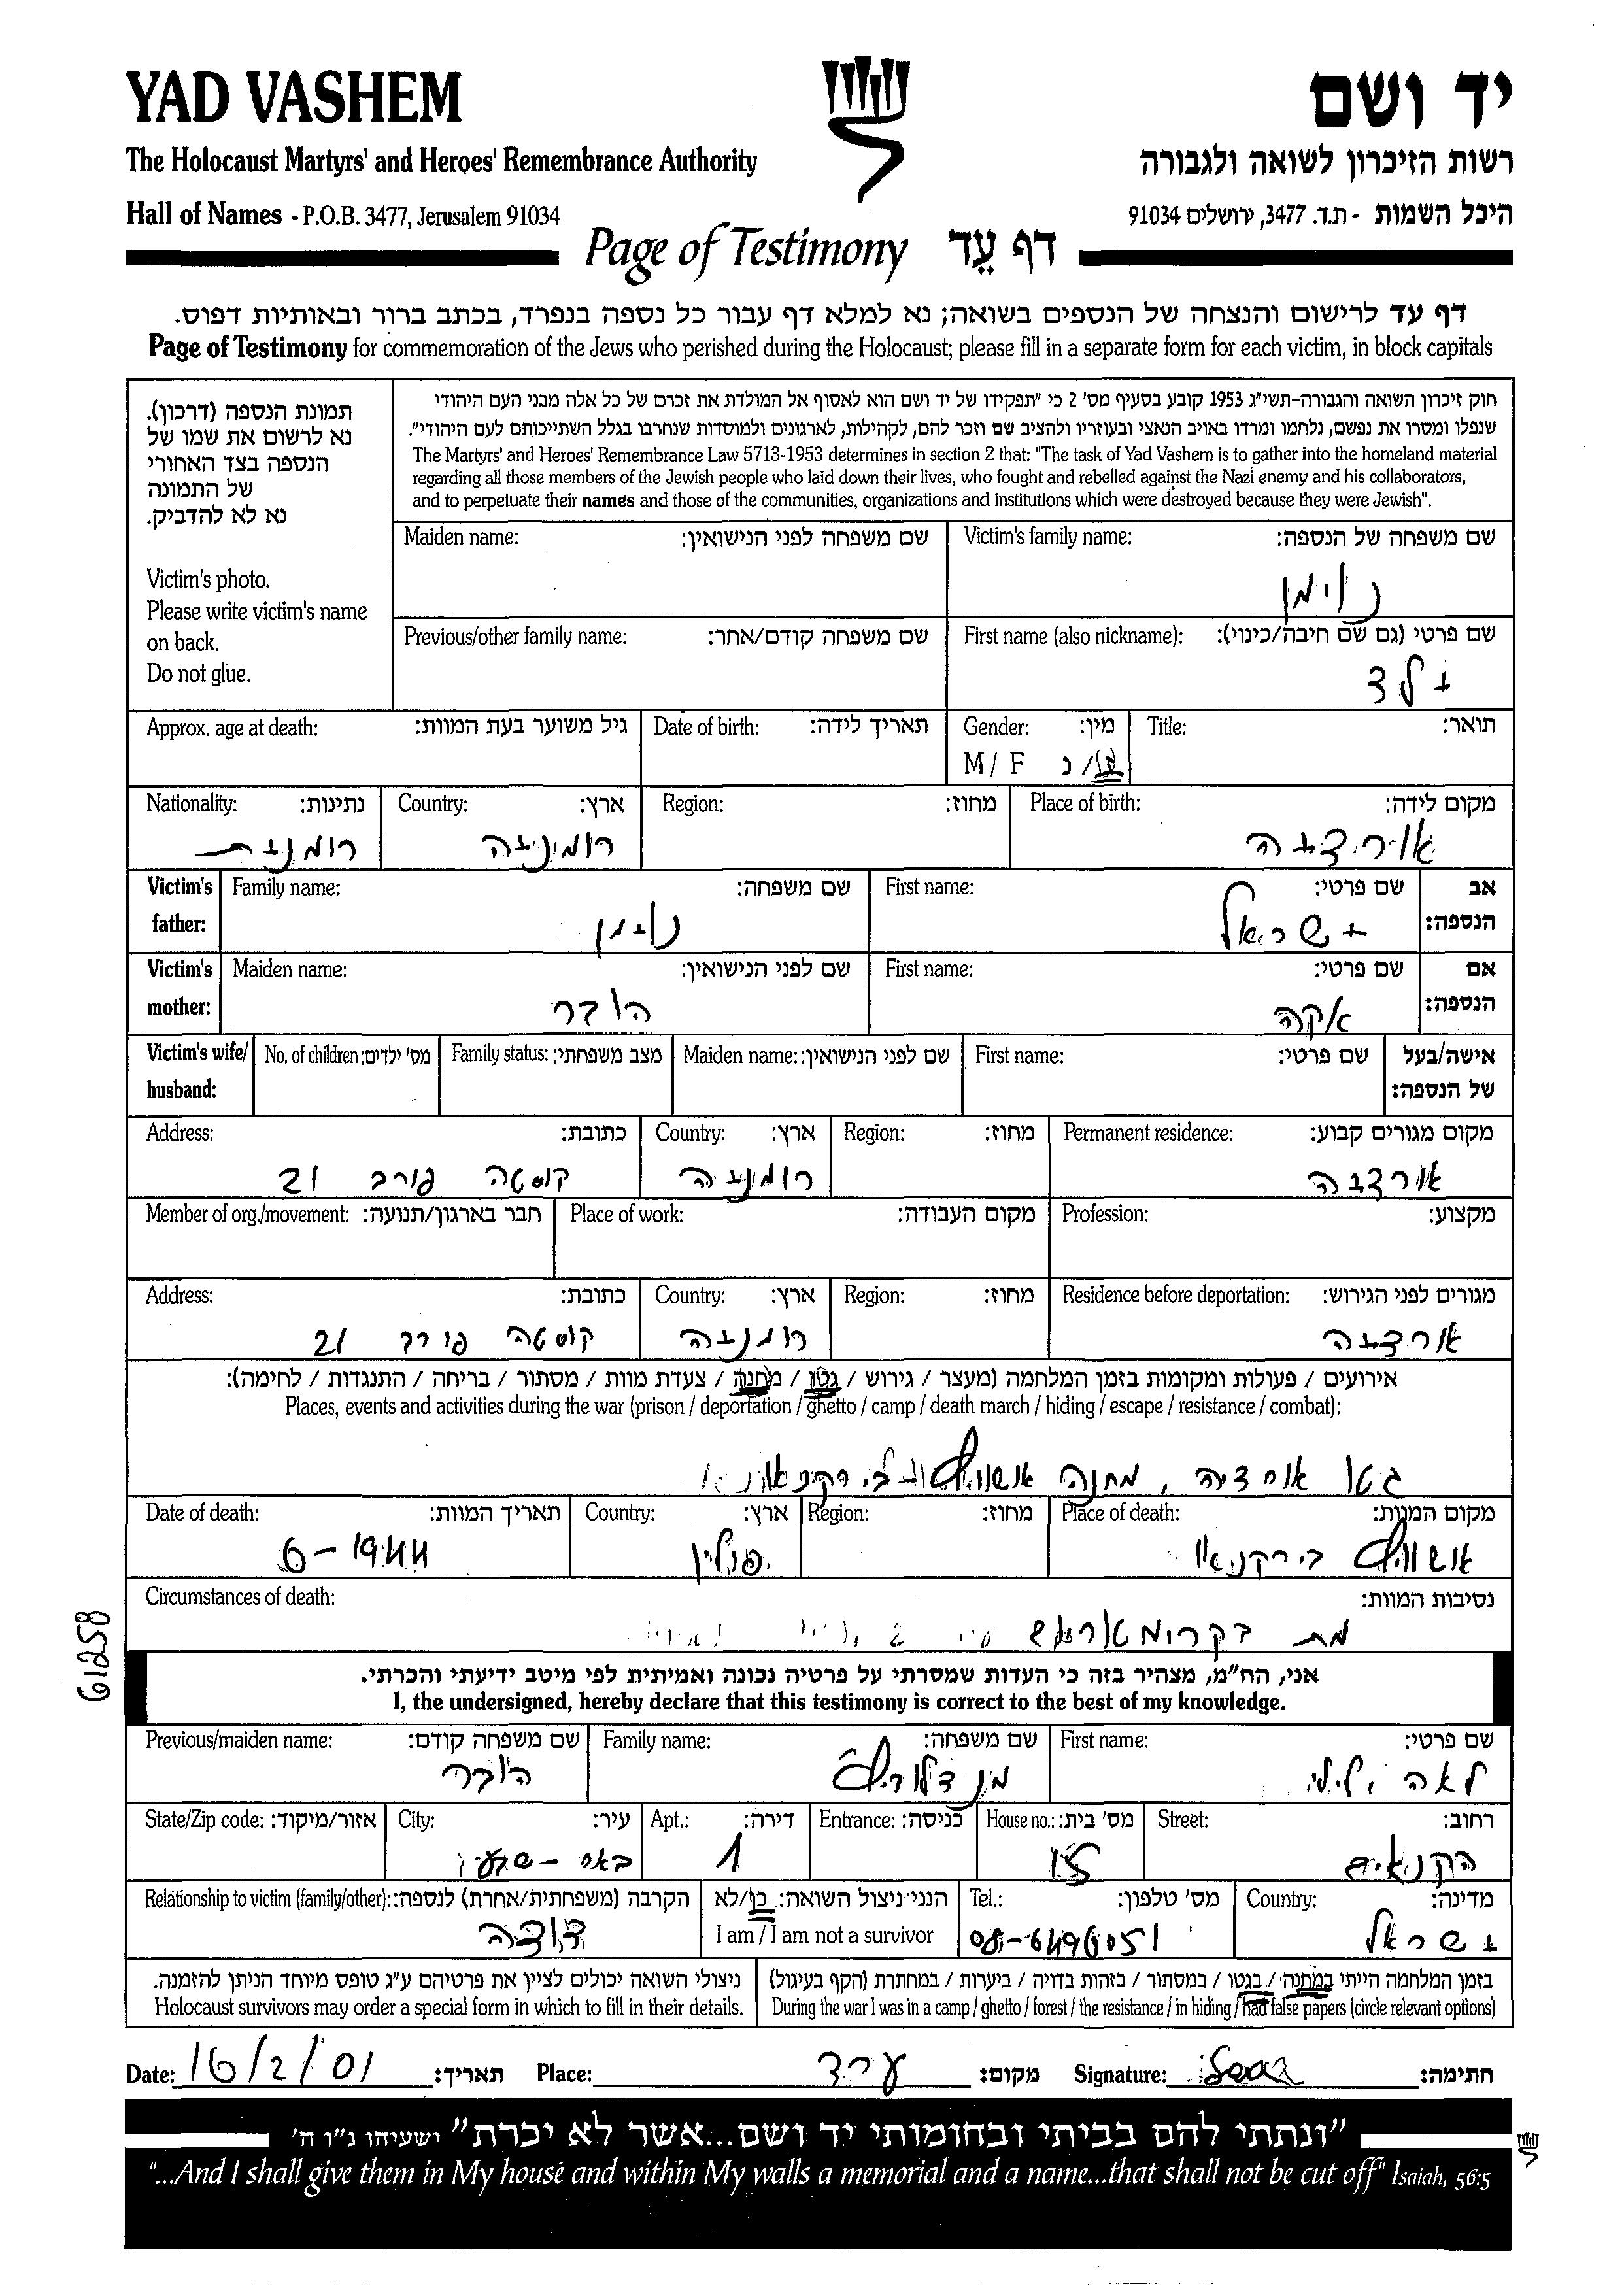 YAD VASHEM
יד ושם
The Holocaust Martyrs' and Heroes' Remembrance Authority
רשות הזיכרון לשואה ולגבורה
Hall of Names - P.O.B. 3477, Jerusalem 91034
היכל השמות - ת.ד. 3477, ירושלים 91034
Page of Testimony דף עֵד
דף עד לרישום והנצחה של הנספים בשואה; נא למלא דף עבור כל נספה בנפרד, בכתב ברור ובאותיות דפוס.
Page of Testimony for commemoration of the Jews who perished during the Holocaust; please fill in a separate form for each victim, in block capitals
תמונת הנספה (דרכון).
נא לרשום את שמו של
הנספה בצד האחורי
של התמונה
נא לא להדביק.
Victim's photo.
Please write victim's name
on back.
Do not glue.
חוק זיכרון השואה והגבורה-תשי"ג 1953 קובע בסעיף מס' 2 כי "תפקידו של יד ושם הוא לאסוף אל המולדת את זכרם של כל אלה מבני העם היהודי
שנפלו ומסרו את נפשם, נלחמו ומרדו באויב הנאצי ובעוזריו ולהציב שם וזכר להם, לקהילות, לארגונים ולמוסדות שנחרבו בגלל השתייכותם לעם היהודי".
The Martyrs' and Heroes' Remembrance Law 5713-1953 determines in section 2 that: "The task of Yad Vashem is to gather into the homeland material
regarding all those members of the Jewish people who laid down their lives, who fought and rebelled against the Nazi enemy and his collaborators,
and to perpetuate their names and those of the communities, organizations and institutions which were destroyed because they were Jewish".
Victim's family name: שם משפחה של הנספה:
נוימן
Maiden name: שם משפחה לפני הנישואין:
First name (also nickname): שם פרטי (גם שם חיבה/כינוי):
ילד
Previous/other family name: שם משפחה קודם/אחר:
Title: תואר:
Gender: מין:
M / F ז/נ
Date of birth: תאריך לידה:
Approx. age at death: גיל משוער בעת המוות:
Place of birth: מקום לידה:
אורדיה
Region: מחוז:
Country: ארץ:
רומניה
Nationality: נתינות:
רומנית
אב
הנספה:
First name: שם פרטי:
ישראל
Family name: שם משפחה:
נוימן
Victim's
father:
אם
הנספה:
First name: שם פרטי:
Maiden name: שם לפני הנישואין:
הובר
Victim's
mother:
אישה/בעל
של הנספה:
First name: שם פרטי:
Maiden name: שם לפני הנישואין:
Family status: מצב משפחתי:
No. of children: מס' ילדים:
Victim's wife/
husband:
Permanent residence: מקום מגורים קבוע:
אורדיה
Region: מחוז:
Country: ארץ:
רומניה
Address: כתובת:
קוסטה פורב 21
Profession: מקצוע:
Place of work: מקום העבודה:
Member of org./movement: חבר בארגון/תנועה:
Residence before deportation: מגורים לפני הגירוש:
אורדיה
Region: מחוז:
Country: ארץ:
רומניה
Address: כתובת:
קוסטה 21
אירועים / פעולות ומקומות בזמן המלחמה (מעצר / גירוש / גטו / מחנה / צעדת מוות / מסתור / בריחה / התנגדות / לחימה):
Places, events and activities during the war (prison / deportation / ghetto / camp / death march / hiding / escape / resistance / combat):
גטו אורדיה, מחנה אושוויץ-בירקנאו
Place of death: מקום המוות:
אושוויץ בירקנאו
Region: מחוז:
Country: ארץ:
פולין
Date of death: תאריך המוות:
6-1944
Circumstances of death: נסיבות המוות:
מת בקרומטוריום
61258
אני, הח"מ, מצהיר בזה כי העדות שמסרתי על פרטיה נכונה ואמיתית לפי מיטב ידיעתי והכרתי.
I, the undersigned, hereby declare that this testimony is correct to the best of my knowledge.
First name: שם פרטי:
לאה לילי
Family name: שם משפחה:
מנדלוביץ
Previous/maiden name: שם משפחה קודם:
הובר
Street: רחוב:
הקנאים
House no.: מס' בית:
Entrance: כניסה:
Apt.: דירה:
1
City: עיר:
באר-שבע
State/Zip code: אזור/מיקוד:
Country: מדינה:
ישראל
Tel.: מס' טלפון:
08-6496051
הנני ניצול השואה: כן/לא
I am / I am not a survivor
Relationship to victim (family/other): הקרבה (משפחתית/אחרת) לנספה:
דודה
בזמן המלחמה הייתי במחנה / בגטו / במסתור / בזהות בדויה / ביערות / במחתרת (הקף בעיגול)
During the war I was in a camp / ghetto / forest / the resistance / in hiding / had false papers (circle relevant options)
ניצולי השואה יכולים לציין את פרטיהם ע"ג טופס מיוחד הניתן להזמנה.
Holocaust survivors may order a special form in which to fill in their details.
Date: 16/2/01 תאריך: Place: ערד מקום: Signature: חתימה:
"ונתתי להם בביתי ובחומותי יד ושם...אשר לא יכרת" ישעיהו נ"ו ה'
"...And I shall give them in My house and within My walls a memorial and a name...that shall not be cut off" Isaiah, 56:5